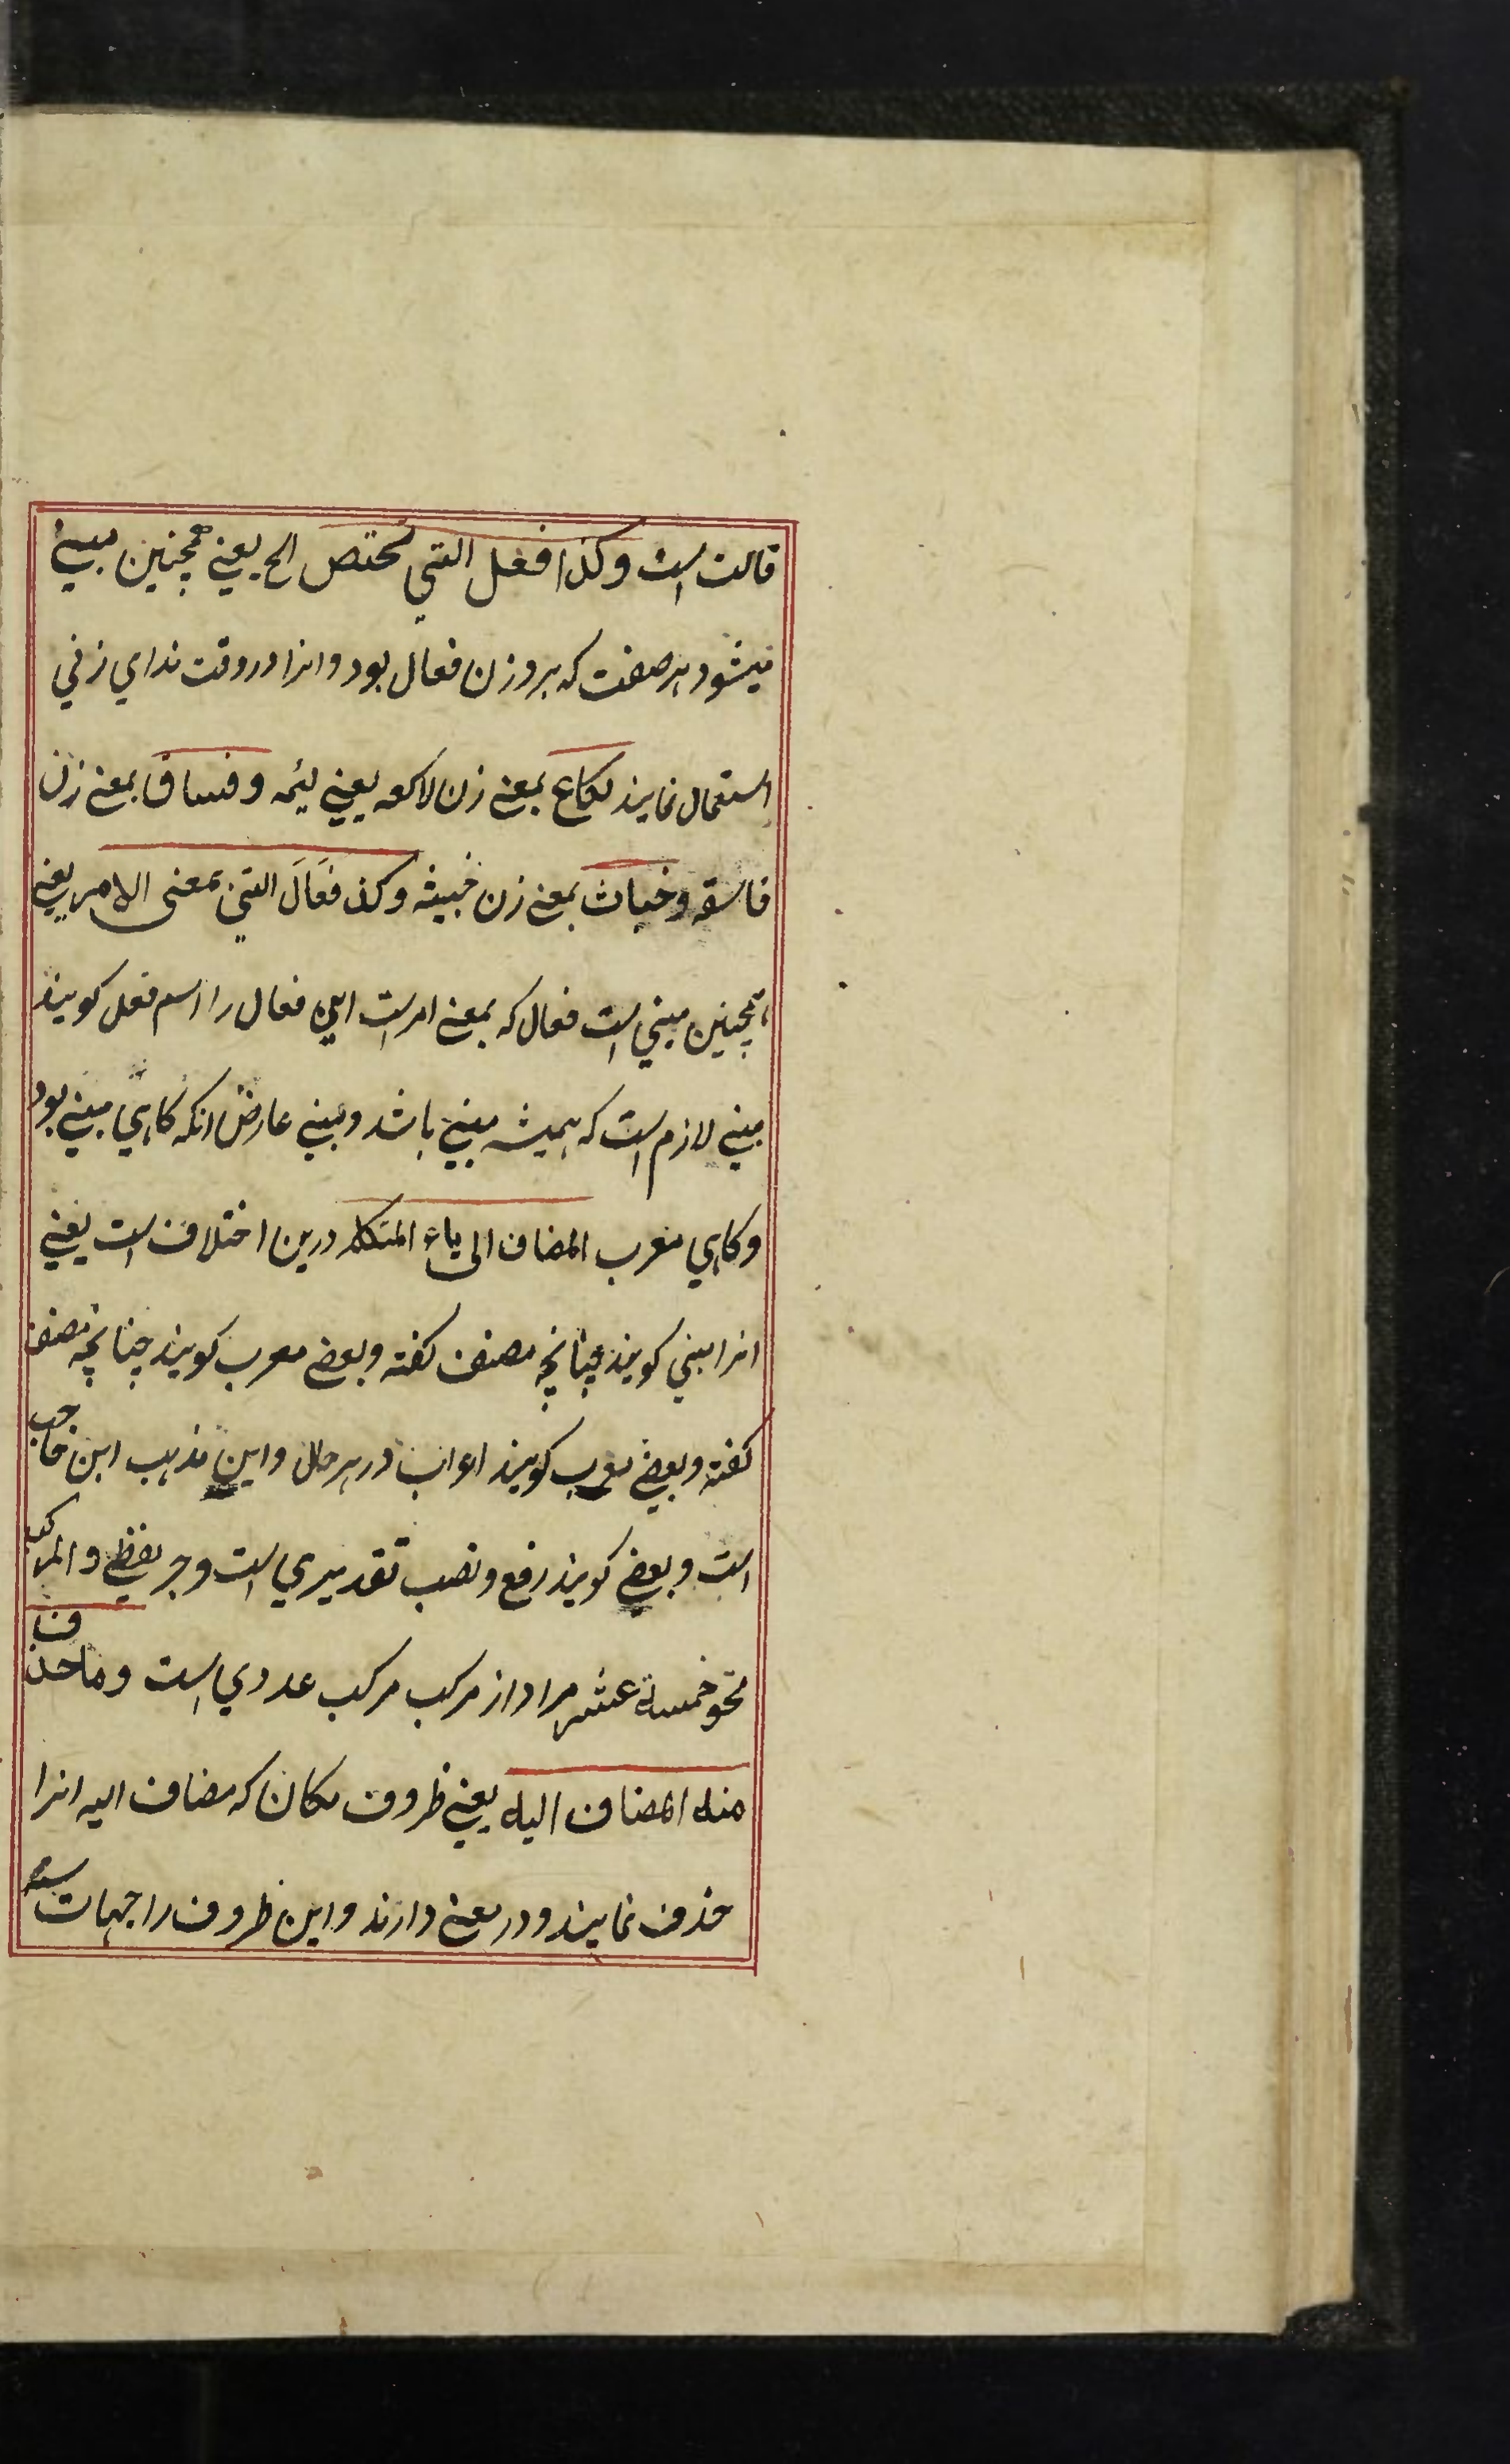 قالت است وکذا فعل التي تختص الخ یعنے همچنین مبنے
میشود هر صفت که بروزن فعال بود وانرا در وقت ندای زنی
استعمال نمایند لکاع بمعنے زن لاکعه یعنے لئیمه وفساق بمعنے زن
فاسقه وخباث بمعنے زن خبیثه وکذ فَعَالَ التي بمعنى الامر یعنے
همچنین مبني است فعال که بمعنے امر است این فعال را اسم فعل کویند
مبنے لازم است که همیشه مبنے باشد ومبنے عارض انکه کاهي مبنے بود
وکاهي معرب المضاف الى یاء المتکلم درین اختلاف است یعنے
انرا مبني کویند چنانچه مصنف کفته وبعضے معرب کویند چنانچه مصنف
کفته وبعضے معرب کویند اعراب در هر حال واین مذهب ابن حاجب
است وبعضے کویند رفع ونصب تقدیري است وجر لفظے والمرکب
نحو خمسة عشر مراد از مرکب مرکب عددي است وما حذف
منه المضاف اليه یعنے ظروف مکان که مضاف الیه انرا
حذف نمایند ودر معنے دارند واین ظروف را جهات